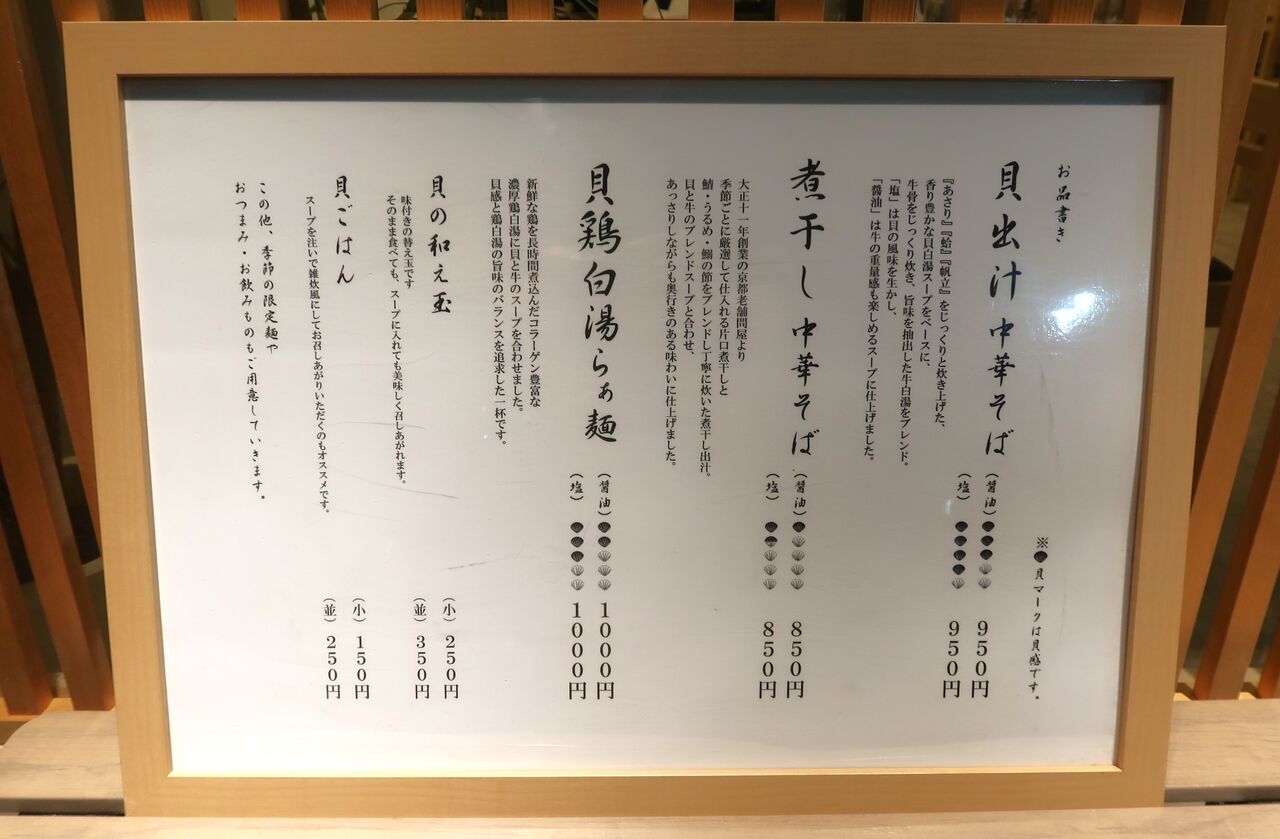 お品書き
※貝マークは貝感です。
貝出汁中華そば
(醤油) 950円
(塩) 950円
『あさり』『蛤』『帆立』をじっくりと炊き上げた、
香り豊かな貝白湯スープをベースに、
牛骨をじっくり炊き、旨味を抽出した牛白湯をブレンド。
「塩」は貝の風味を生かし、
「醤油」は牛の重量感も楽しめるスープに仕上げました。
煮干し中華そば
(醤油) 850円
(塩) 850円
大正十一年創業の京都老舗問屋より
季節ごとに厳選して仕入れる片口煮干しと
鯖・うるめ・鰯の節をブレンドし丁寧に炊いた煮干し出汁。
貝と牛のブレンドスープと合わせ、
あっさりしながらも奥行きのある味わいに仕上げました。
貝鶏白湯らぁ麺
(醤油) 1000円
(塩) 1000円
新鮮な鶏を長時間煮込んだコラーゲン豊富な
濃厚鶏白湯に貝と牛のスープを合わせました。
貝感と鶏白湯の旨味のバランスを追求した一杯です。
貝の和え玉
(小) 250円
(並) 350円
味付きの替え玉です
そのまま食べても、スープに入れても美味しく召しあがれます。
貝ごはん
(小) 150円
(並) 250円
スープを注いで雑炊風にしてお召しあがりいただくのもオススメです。
この他、季節の限定麺や
おつまみ・お飲みものもご用意しています。